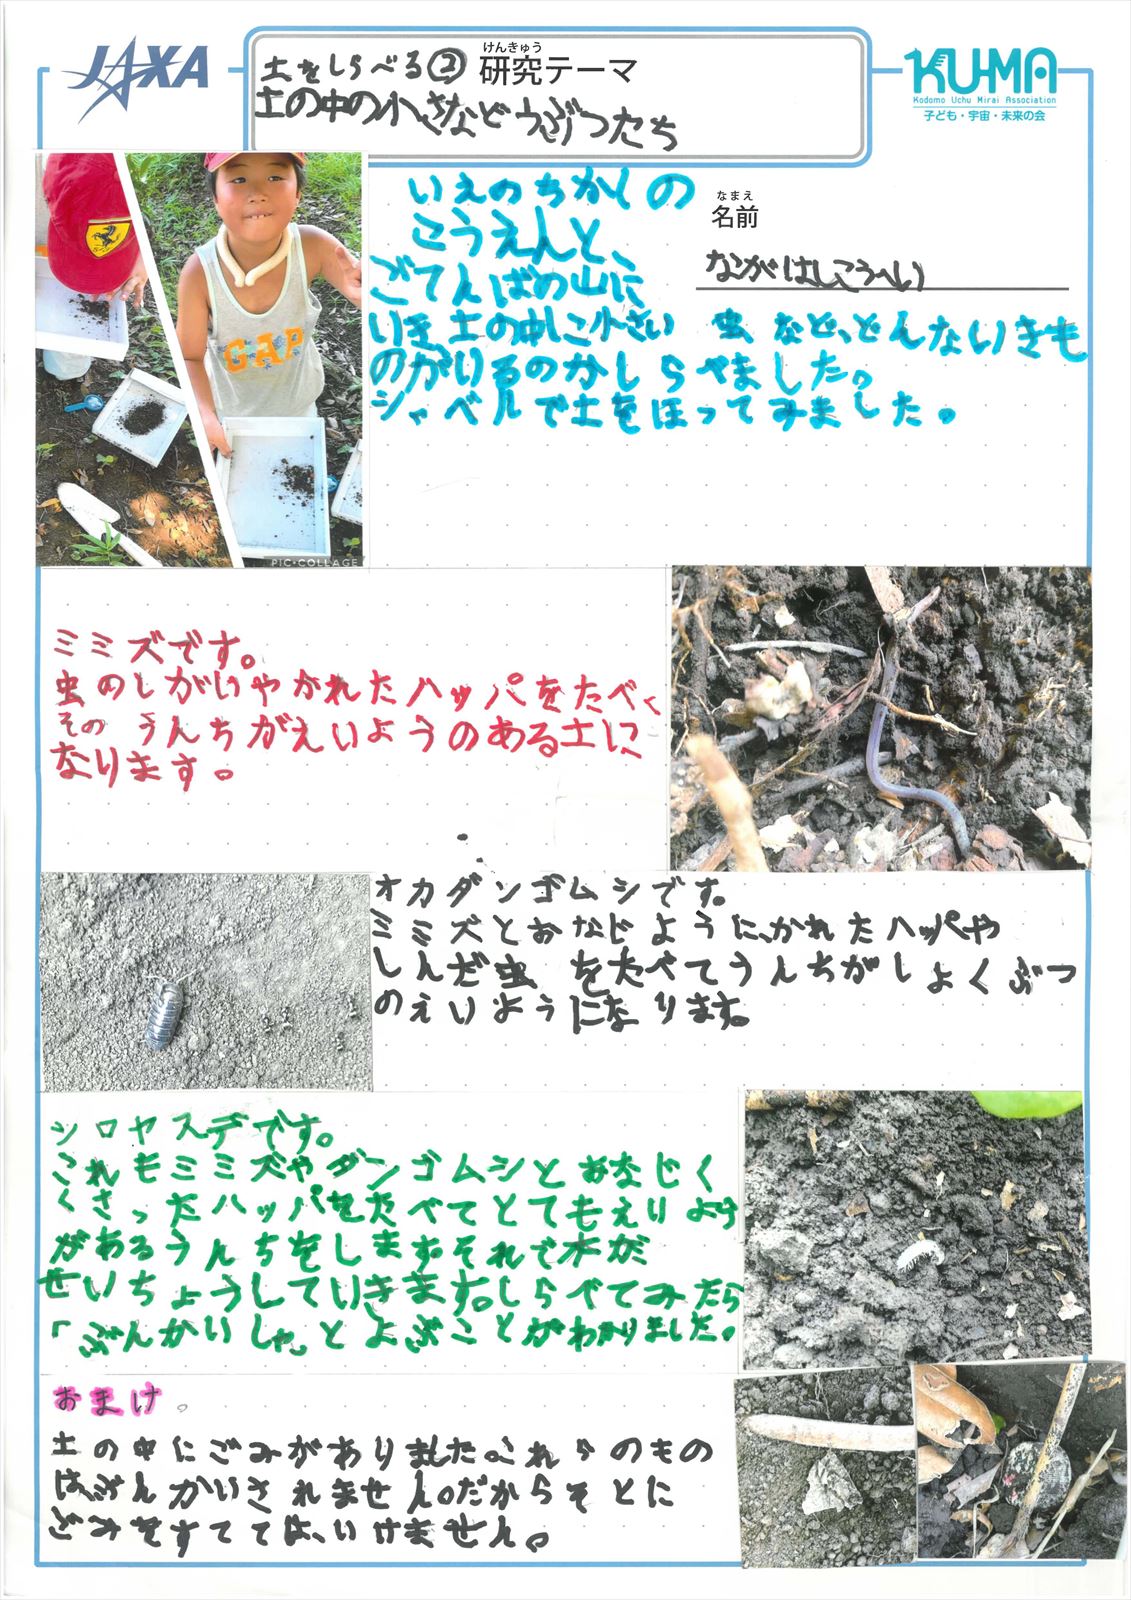 JAXA
けんきゅう
土をしらべる② 研究テーマ
土の中の小さなどうぶつたち
KU-MA
Kodomo Uchu Mirai Association
子ども・宇宙・未来の会
なまえ
名前
ながはしこうへい
いえのちかくの
こうえんと、
ごてんばの山に
いき土の中に小さい 虫 など、どんないきも
のがいるのかしらべました。
シャベルで土をほってみました。
GAP
PIC•COLLAGE
ミミズです。
虫のしがいやかれたハッパをたべ、
その うんちがえいようのある土に
なります。
オカダンゴムシです。
ミミズとおなじように、かれたハッパや
しんだ虫 をたべてうんちがしょくぶつ
のえいようになります。
シロヤスデです。
これもミミズやダンゴムシとおなじく
くさったハッパをたべてとてもえいよう
があるうんちをします。それで木が
せいちょうしていきます。しらべてみたら
「ぶんかいしゃ」とよぶことがわかりました。
おまけ。
土の中にごみがありました。これらのもの
はぶんかいされません。だからそとに
ごみをすててはいけません。